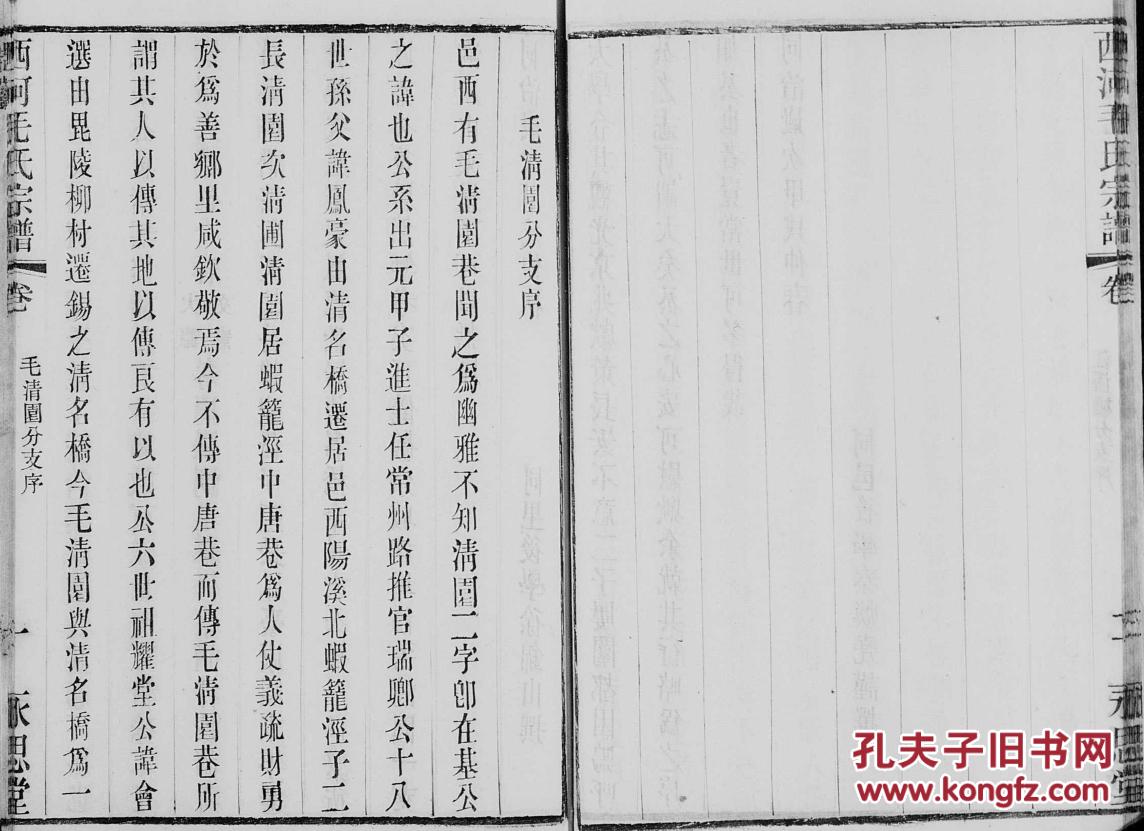 西河毛氏宗譜
卷
二
永思堂
毛清園分支序
邑西有毛清園巷聞之爲幽雅不知清園二字卽在基公
之諱也公系出元甲子進士任常州路推官瑞卿公十八
世孫父諱鳳豪由清名橋遷居邑西陽溪北蝦籠涇子二
長清園次清圃清園居蝦籠涇中唐巷爲人仗義疏財勇
於爲善鄉里咸欽敬焉今不傳中唐巷而傳毛清園巷所
謂其人以傳其地以傳良有以也公六世祖耀堂公諱會
選由毘陵柳村遷錫之清名橋今毛清園與清名橋爲一
西河毛氏宗譜
卷
毛清園分支序
一
永思堂
孔夫子旧书网
www.kongfz.com